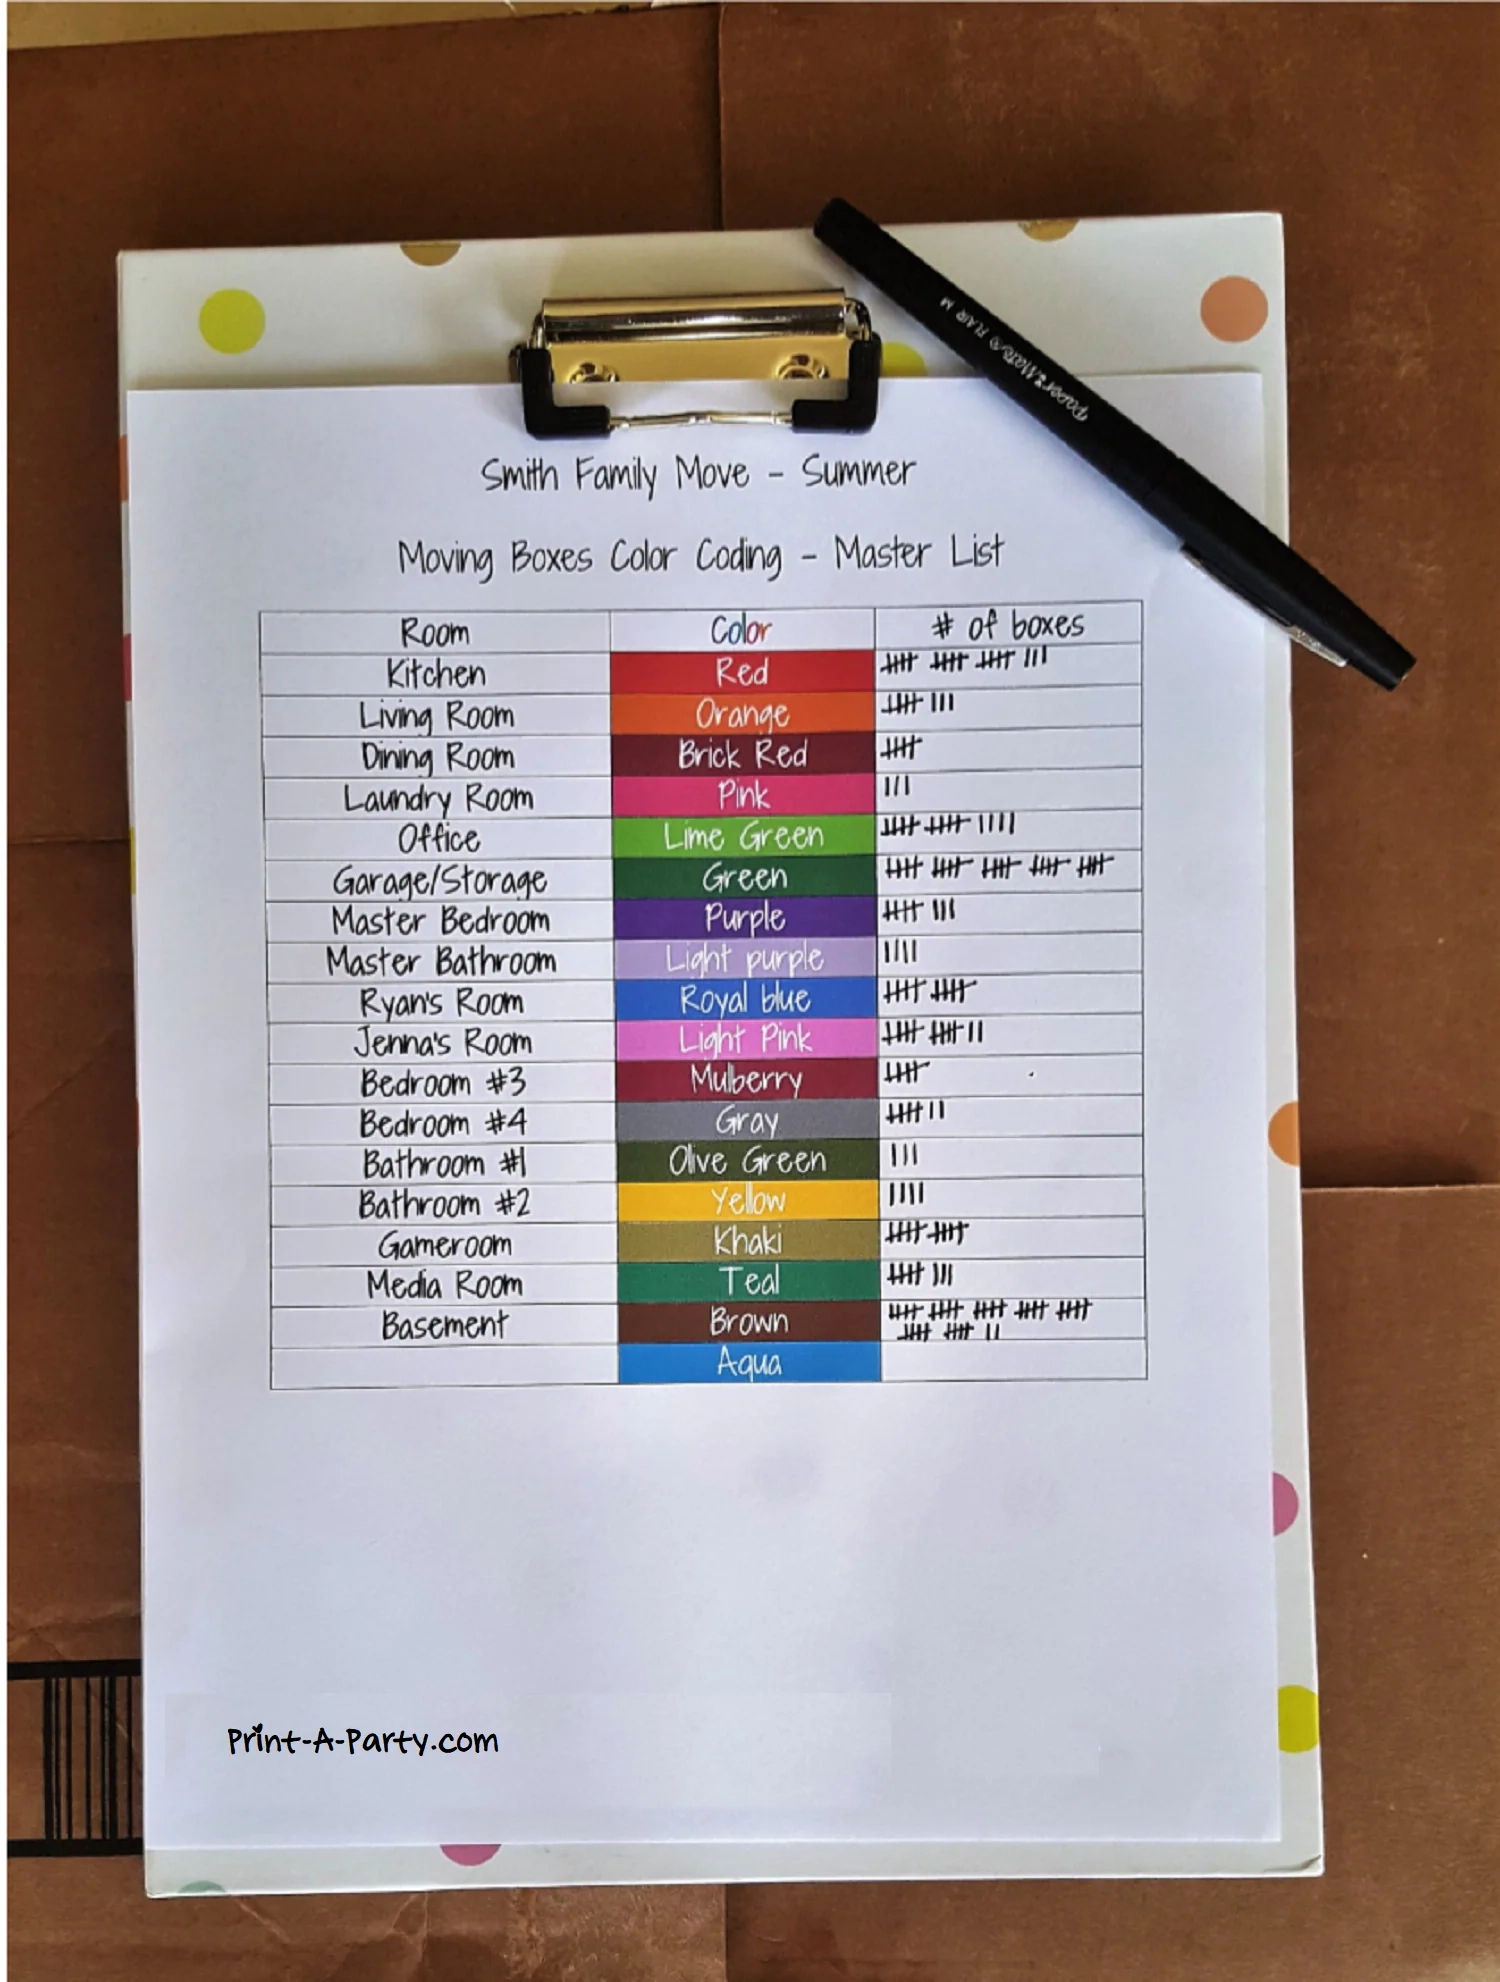 Paper:Mate® FLAIR M
Smith Family Move - Summer
Moving Boxes Color Coding - Master List
Room Color # of boxes
Kitchen Red
Living Room Orange
Dining Room Brick Red
Laundry Room Pink
Office Lime Green
Garage/Storage Green
Master Bedroom Purple
Master Bathroom Light purple
Ryan's Room Royal blue
Jenna's Room Light Pink
Bedroom #3 Mulberry
Bedroom #4 Gray
Bathroom #1 Olive Green
Bathroom #2 Yellow
Gameroom Khaki
Media Room Teal
Basement Brown
Aqua
Print-A-Party.com